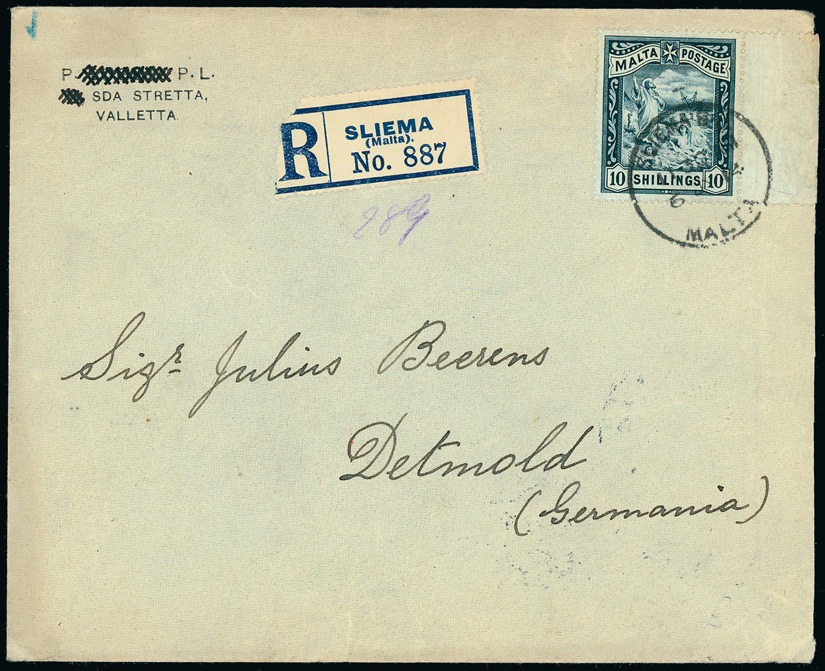 P. P. L.
SDA STRETTA,
VALLETTA
R
SLIEMA
(Malta).
No. 887
289
MALTA POSTAGE
10 SHILLINGS 10
MALTA
Sigr. Julius Beerens
Detmold
(Germania)